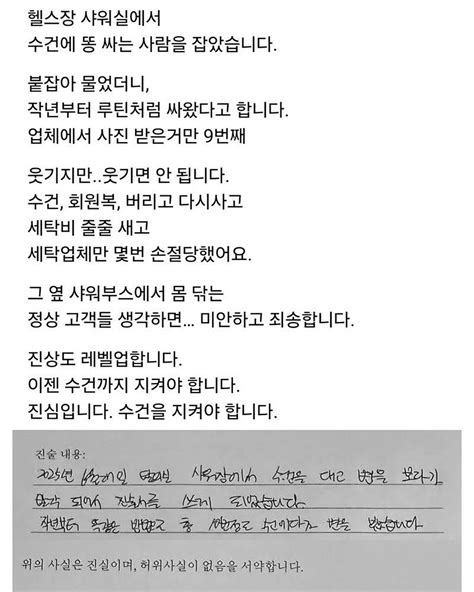 헬스장 샤워실에서
수건에 똥 싸는 사람을 잡았습니다.
붙잡아 물었더니,
작년부터 루틴처럼 싸왔다고 합니다.
업체에서 사진 받은거만 9번째
웃기지만..웃기면 안 됩니다.
수건, 회원복, 버리고 다시사고
세탁비 줄줄 새고
세탁업체만 몇번 손절당했어요.
그 옆 샤워부스에서 몸 닦는
정상 고객들 생각하면... 미안하고 죄송합니다.
진상도 레벨업합니다.
이젠 수건까지 지켜야 합니다.
진심입니다. 수건을 지켜야 합니다.
진술 내용:
2025년 샤워장에서 수건을 대고 변을 보다가
되어 진술서를 쓰게 되었습니다.
작년부터 똑같은 방법으로 총 수건에다가 변을 봤습니다.
위의 사실은 진실이며, 허위사실이 없음을 서약합니다.